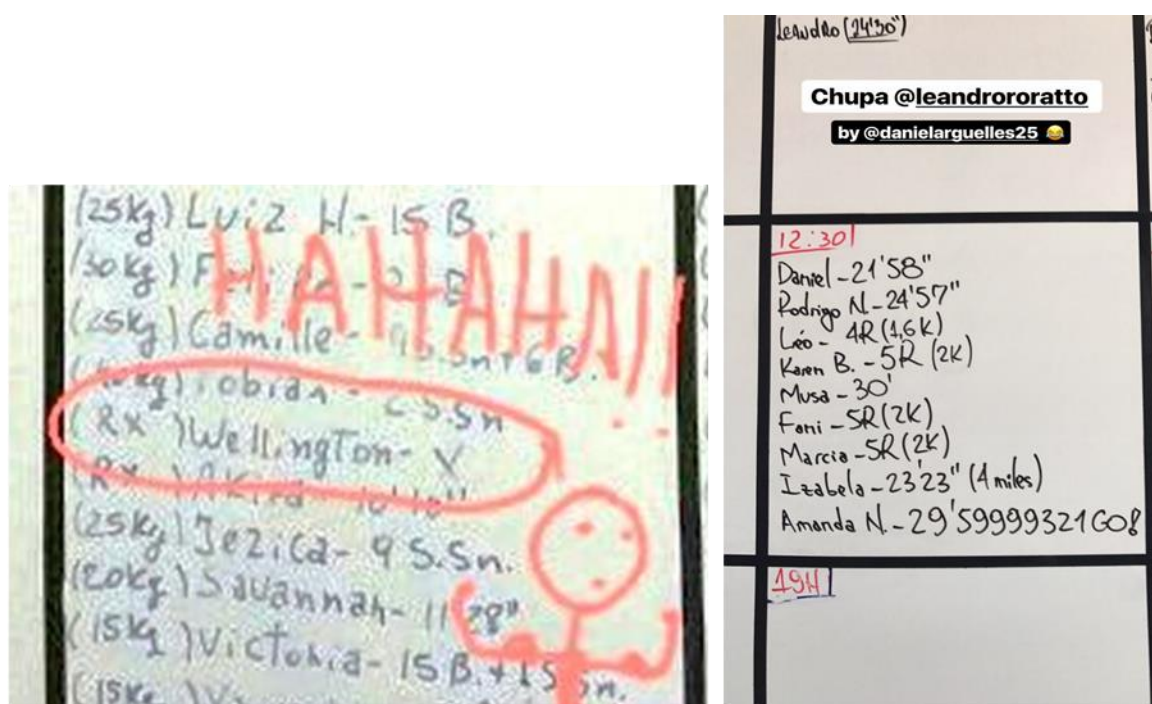 (25kg) Luiz H- 15 B.
(30kg)
HAHAHA!!
(25kg) Camille- 9 S.Sn + 6 B.
Tobian - S.Sn
(RX) Wellington- X
(RX)
(25kg) Jezica- 9 S.Sn.
(20kg) Savannah- 11'28"
(15kg) Victoria- 15 B. + 15 Sn.
(15kg)
Leandro (24'30")
Chupa @leandrororatto
by @danielarguelles25 😂
12:30
Daniel - 21'58"
Rodrigo N. - 24'57"
Léo - 4R (1,6K)
Karen B. - 5R (2K)
Musa - 30'
Fani - 5R (2K)
Marcia - 5R (2K)
Izabela - 23'23" (4 miles)
Amanda N. - 29'59999321GO!
19H